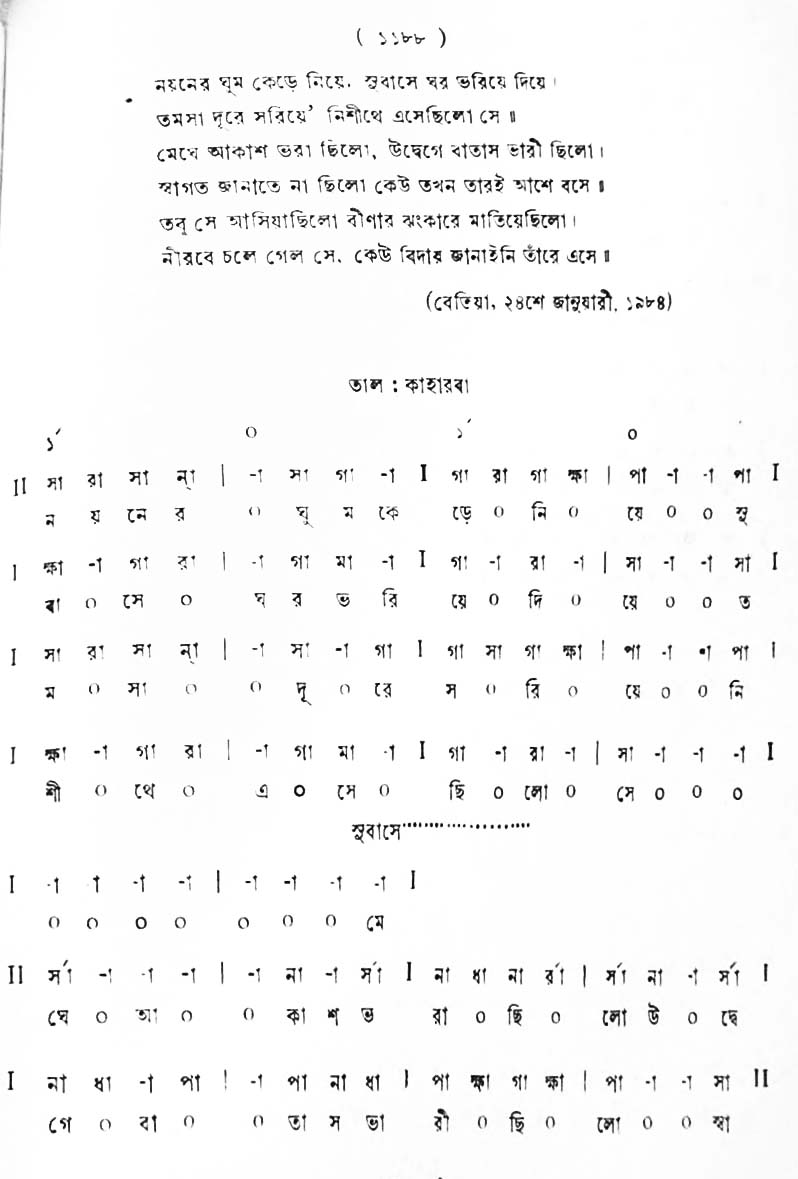 ( ১১৮৮ )
নয়নের ঘুম কেড়ে নিয়ে, সুবাসে ঘর ভরিয়ে দিয়ে।
তমসা দূরে সরিয়ে' নিশীথে এসেছিলো সে॥
মেঘে আকাশ ভরা ছিলো, উদ্বেগে বাতাস ভারী ছিলো।
স্বাগত জানাতে না ছিলো কেউ তখন তারই আশে বসে॥
তবু সে আসিয়াছিলো বীণার ঝংকারে মাতিয়েছিলো।
নীরবে চলে গেল সে, কেউ বিদায় জানাইনি তাঁরে এসে॥
(বেতিয়া, ২৪শে জানুয়ারী, ১৯৮৪)
তাল : কাহারবা
১´ ০ ১´ ০
II সা রা সা ন্া | -া সা গা -া I গা রা গা ক্ষা | পা -া -া পা I
ন য় নে র ০ ঘু ম কে ড়ে ০ নি ০ য়ে ০ ০ সু
I ক্ষা -া গা রা | -া গা মা -া I গা -া রা -া | সা -া -া সা I
বা ০ সে ০ ঘ র ভ রি য়ে ০ দি ০ য়ে ০ ০ ত
I সা রা সা ন্া | -া সা -া গা I গা সা গা ক্ষা | পা -া -া পা I
ম ০ সা ০ ০ দূ ০ রে স ০ রি ০ য়ে ০ ০ নি
I ক্ষা -া গা রা | -া গা মা -া I গা -া রা -া | সা -া -া -া I
শী ০ থে ০ এ ০ সে ০ ছি ০ লো ০ সে ০ ০ ০
সুবাসে.....................
I -া া -া -া | -া -া -া -া I
০ ০ ০ ০ ০ ০ ০ মে
II র্সা -া -া -া | -া না -া র্সা I না ধা না র্রা | র্সা না -া র্সা I
ঘে ০ আ ০ ০ কা শ্ ভ রা ০ ছি ০ লো উ ০ দ্বে
I না ধা -া পা | -া পা না ধা I পা ক্ষা গা ক্ষা | পা -া -া সা II
গে ০ বা ০ ০ তা স ভা রী ০ ছি ০ লো ০ ০ স্বা